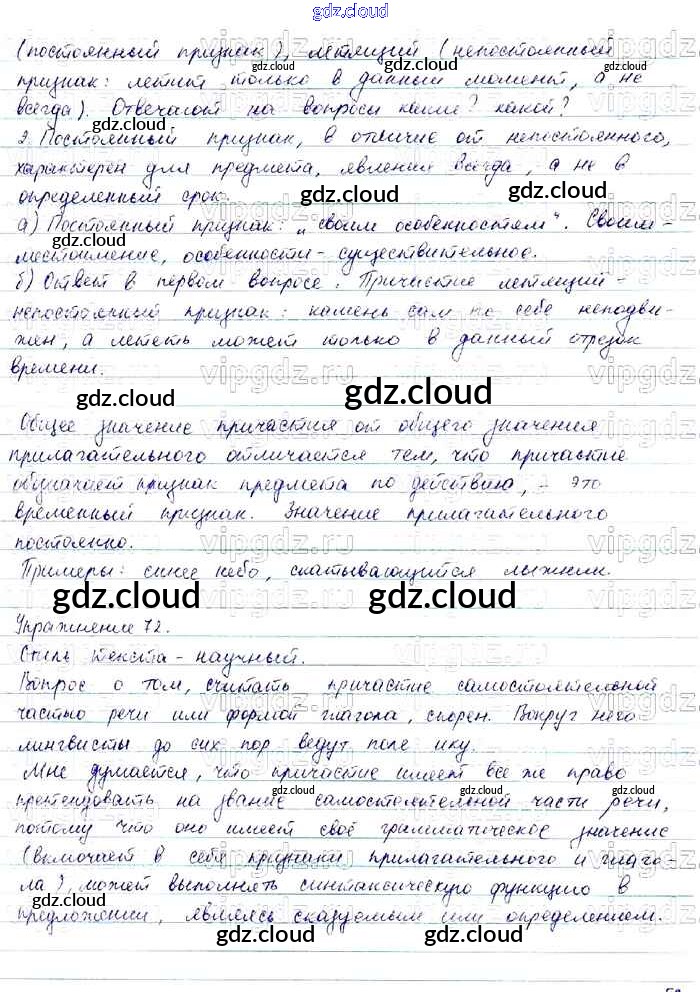 gdz.cloud
(постоянный признак), летящий (непостоянный
признак: летит только в данный момент, а не
всегда). Отвечают на вопросы какие? какой?
2. Постоянный признак, в отличие от непостоянного,
характерен для предмета, явления всегда, а не в
определенный срок.
а) Постоянный признак: „своим особенностям". Своим -
местоимение, особенности - существительное.
б) Ответ в первом вопросе. Причастие летящий -
непостоянный признак: камень сам по себе неподви-
жен, а лететь может только в данный отрезок
времени.
Общее значение причастия от общего значения
прилагательного отличается тем, что причастие
обозначает признак предмета по действию, - это
временный признак. Значение прилагательного
постоянно.
Примеры: синее небо, скатывающийся лыжник.
Упражнение 72.
Стиль текста - научный.
Вопрос о том, считать причастие самостоятельной
частью речи или формой глагола, спорен. Вокруг него
лингвисты до сих пор ведут полемику.
Мне думается, что причастие имеет все же право
претендовать на звание самостоятельной части речи,
потому что оно имеет своё грамматическое значение
(включает в себя признаки прилагательного и глаго-
ла), может выполнять синтаксическую функцию в
предложении, являясь сказуемым или определением.